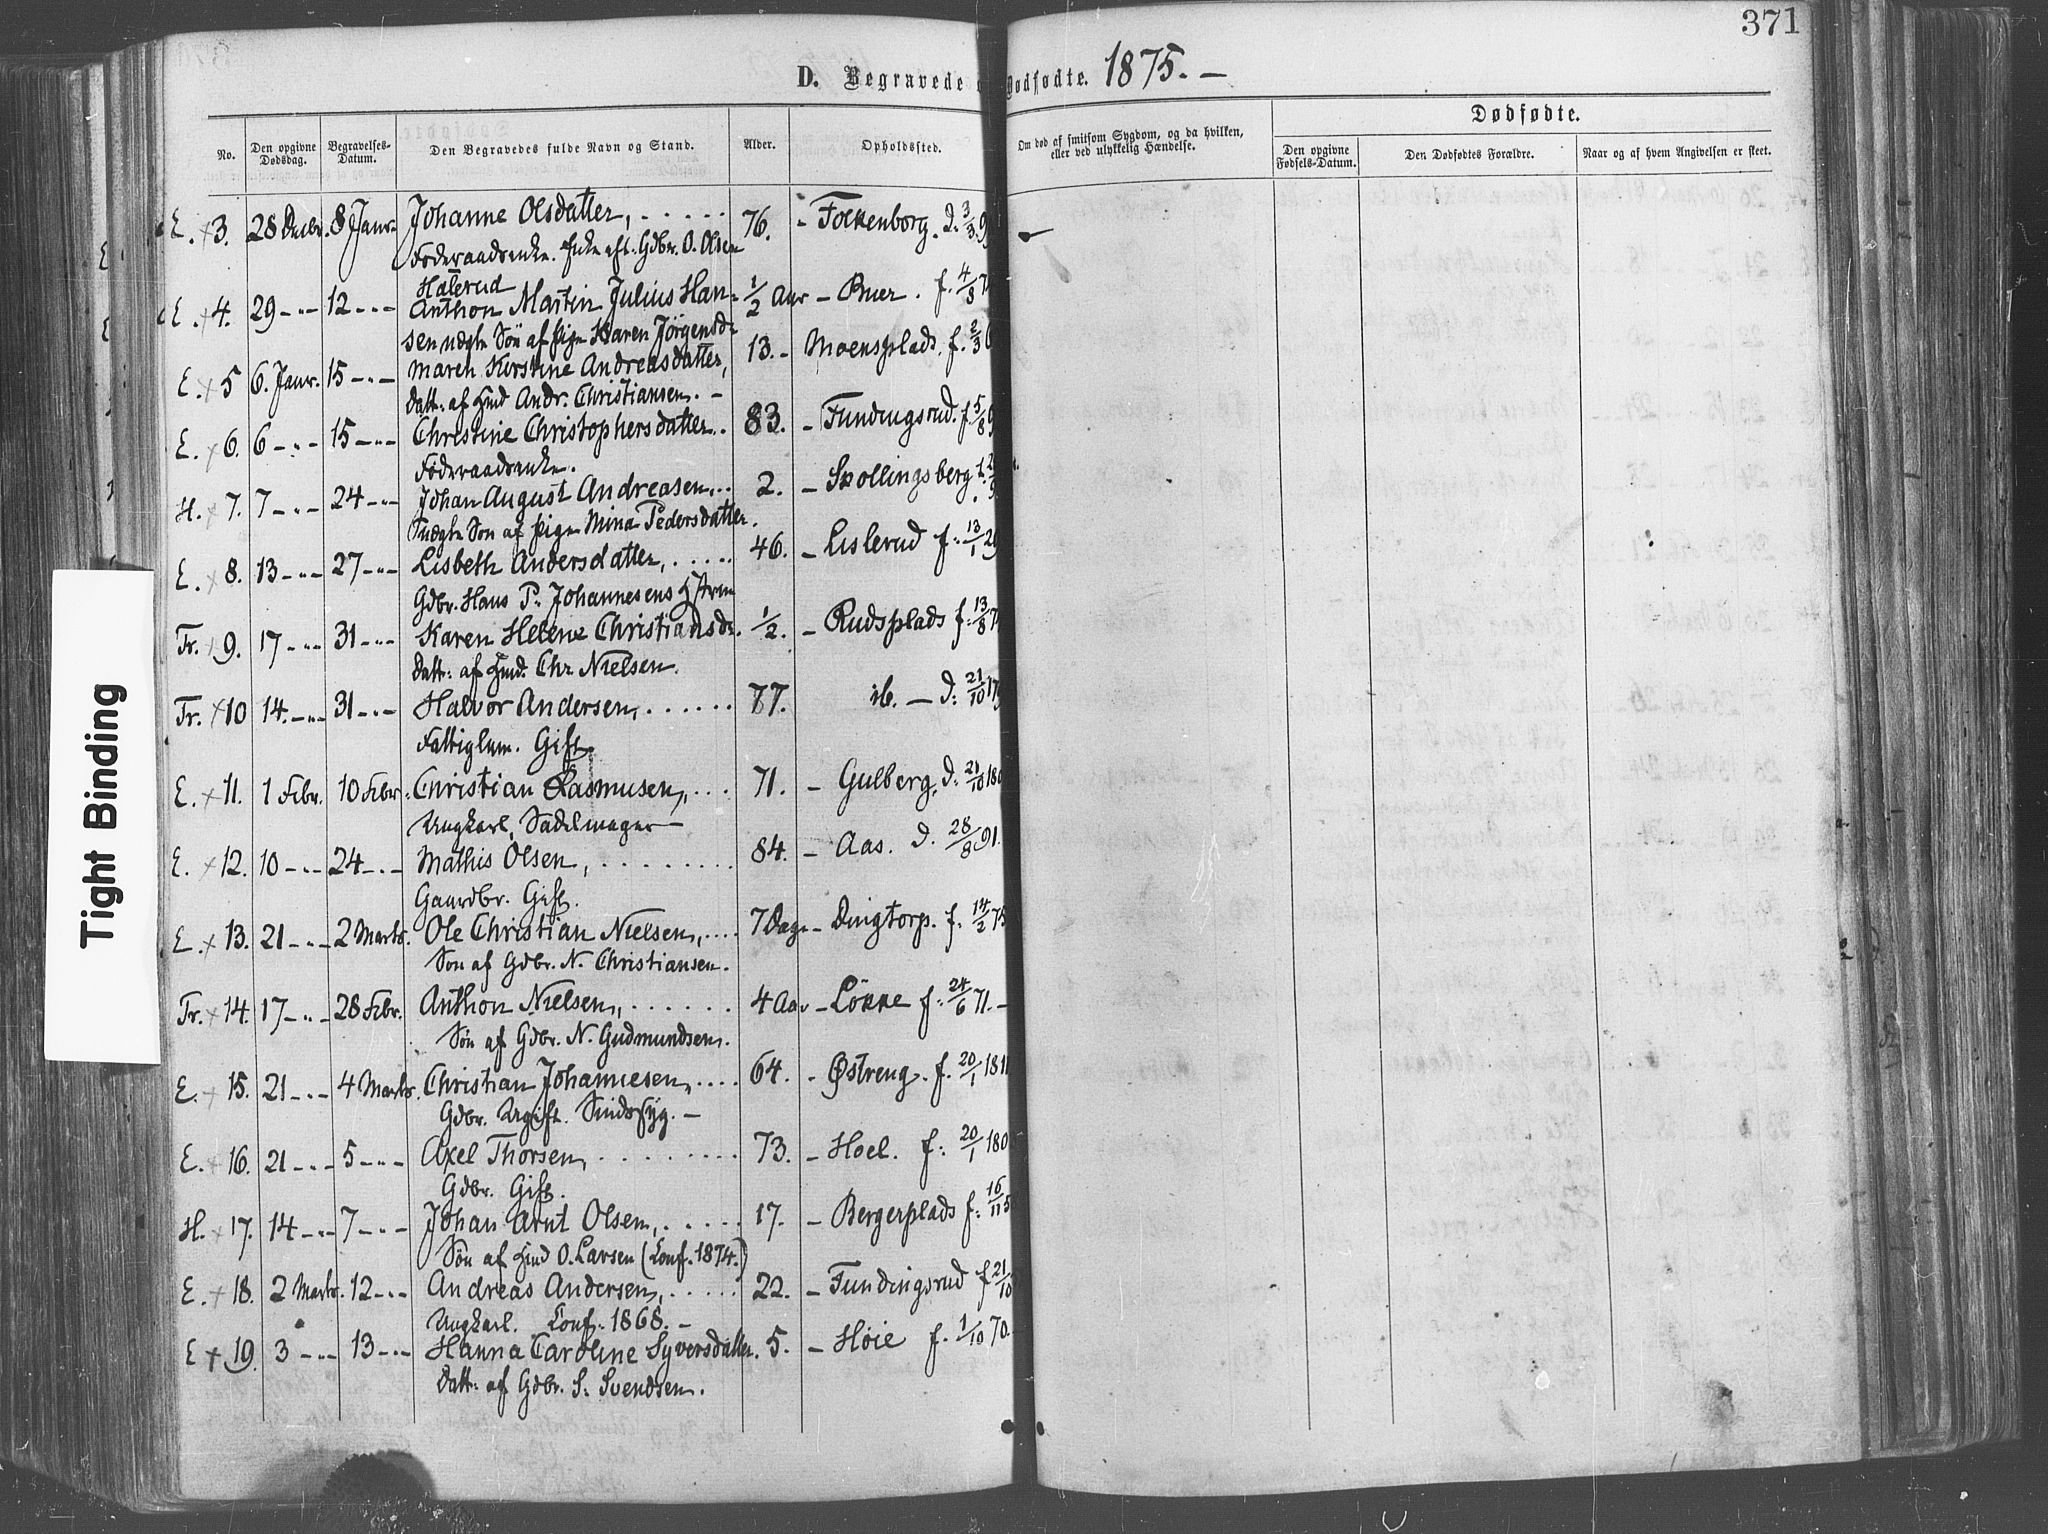 371
D. Begravede o Dødfødte. 1875. —
No.
Den opgivne Dødsdag.
Begravelses-Datum.
Den Begravedes fulde Navn og Stand.
Alder.
Opholdssted.
Om død af smitsom Sygdom, og da hvilken, eller ved ulykkelig Hændelse.
Dødfødte.
Den opgivne Fødsels-Datum.
Den Dødfødtes Forældre.
Naar og af hvem Angivelsen er skeet.
E. + 3. 28 Decbr. 8 Janr. Johanne Olsdatter, . . . . . 76. - Folkenborg. d. 3/3 9
Föderaadsenke. Enke aft. Gdbr. O. Olsen
Halerud
E. + 4. 29 - " - 12 - " - Anthon Martin Julius Han- 1/2 Aar - Buer. f. 4/8 7
sen uægte Sön af Pige Karen Jörgensdr
E. + 5 6. Janr. 15 - " - Maren Kirstine Andreasdatter, 13. - Moensplads. f. 2/3 6
Datt: af Hmd Andr. Christiansen. -
E. + 6. 6 - " - 15 - " - Christine Christophersdatter.. 83. - Fundingsrud. f. 5/8 9
Föderaadsenke.
H. + 7. 7 - " - 24 - " - Johan August Andreasen,.. 2. - Skollingsberg
Uægte Sön af Pige Mina Pedersdatter.
E. + 8. 13 - " - 27 - " - Lisbeth Andersdatter, . . . . . 46. - Lislerud f: 13/1 29
Gdbr. Hans P. Johannesens Hstru
Fr. + 9. 17 - " - 31 - " - Karen Helene Christiansdr. 1/2. - Rudsplads f: 13/8 7
Datt: af Hmd. Chr. Nielsen.
Tr. + 10 14. - " - 31 - " - Halvor Andersen, . . . . . . 77. ib. - d: 21/10 179
Fattiglem. Gift.
E. + 11. 1 Febr. 10 Febr. Christian Rasmusen, . . . 71. - Gulberg, d: 21/10 180
Ungkarl, Sadelmager -
E. + 12. 10 - " - 24 - " - Mathis Olsen, . . . . . . . . 84. - Aas. d. 28/8 91.
Gaardbr. Gift.
E. + 13. 21 - " - 2 Marts. Ole Christian Nielsen, . . . . 7 Dage - Dingtorp. f. 14/2 75
Sön af Gdbr. N. Christiansen.
Tr. + 14. 17 - " - 28 Febr. Anthon Nielsen, . . . . . . 4 Aar - Lökke f: 24/6 71. -
Sön af Gdbr. N. Gudmundsen.
E. + 15. 21 - " - 4 Marts. Christian Johannesen, . . . . 64. - Østreng. f. 20/1 1811
Gdbr. Ugift. Sindssyg. -
E. + 16. 21 - " - 5 - " - Axel Thorsen, . . . . . . . . . 73. - Hoel. f: 20/1 180
Gdbr. Gift.
H. + 17. 14 - " - 7 - " - Johan Arnt Olsen, . . . . . 17. - Bergerplads f: 16/11 5
Sön af Hmd O. Larsen (Conf. 1874.)
E. + 18. 2 Marts. 12 - " - Andreas Andersen, . . . . . 22. - Fundingsrud f 21/10
Ungkarl. Conf. 1868. -
E + 19. 3 - " - 13 - " - Hanna Caroline Syversdatter. 5. - Höie f. 1/10 70.
Datt: af Gdbr. S. Svendsen.
Tight Binding